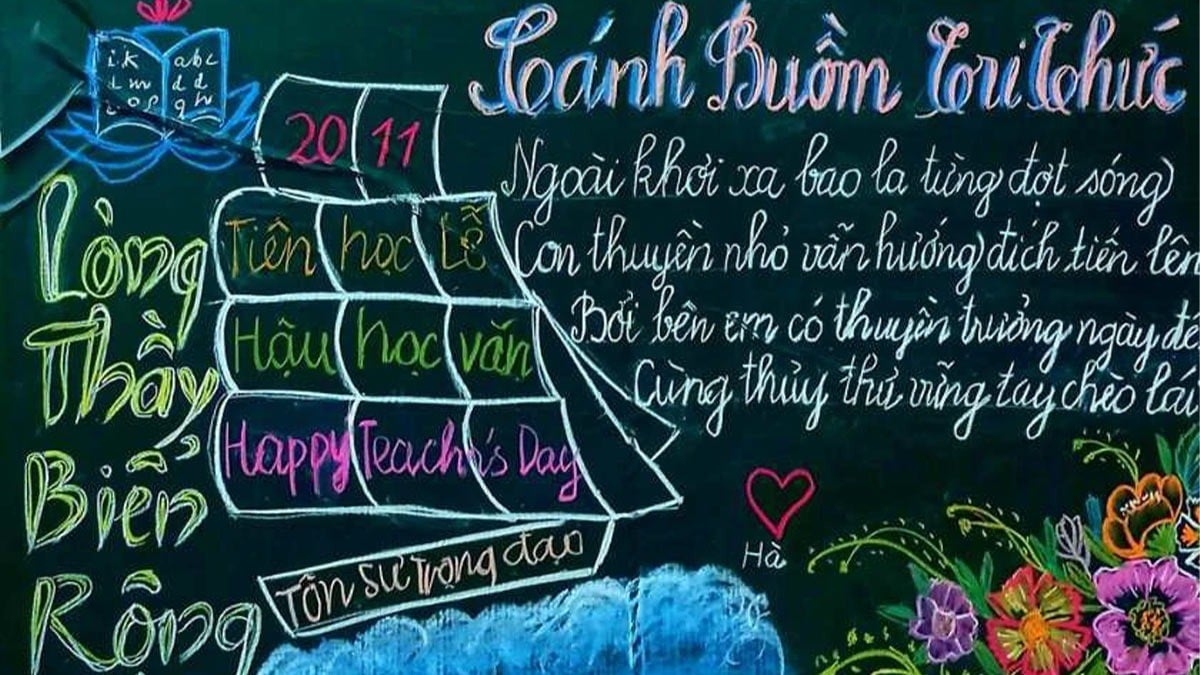 i k
a b c
20 11
Cánh Buồm Tri Thức
Ngoài khơi xa bao la từng đợt sóng
Con thuyền nhỏ vẫn hướng đích tiến lên
Bởi bên em có thuyền trưởng ngày
Cùng thủy thủ vững tay chèo lái
Lòng
Thầy
Biển
Rộng
Tiên học Lễ
Hậu học văn
Happy Teacher's Day
Tôn sư trọng đạo
Hà